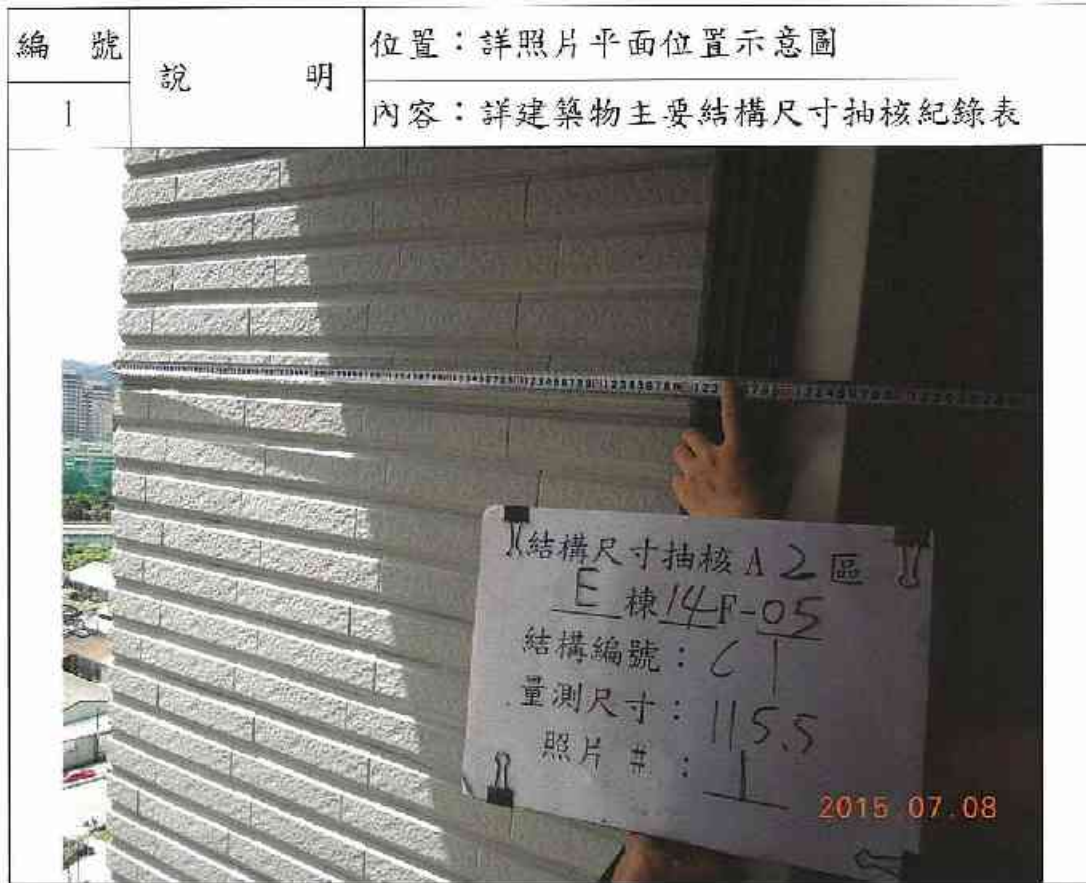 編 號
1
說 明
位置：詳照片平面位置示意圖
內容：詳建築物主要結構尺寸抽核紀錄表
結構尺寸抽核 A 2 區
E 棟 14 F-05
結構編號：C1
量測尺寸：115.5
照片 #：1
2015 07.08